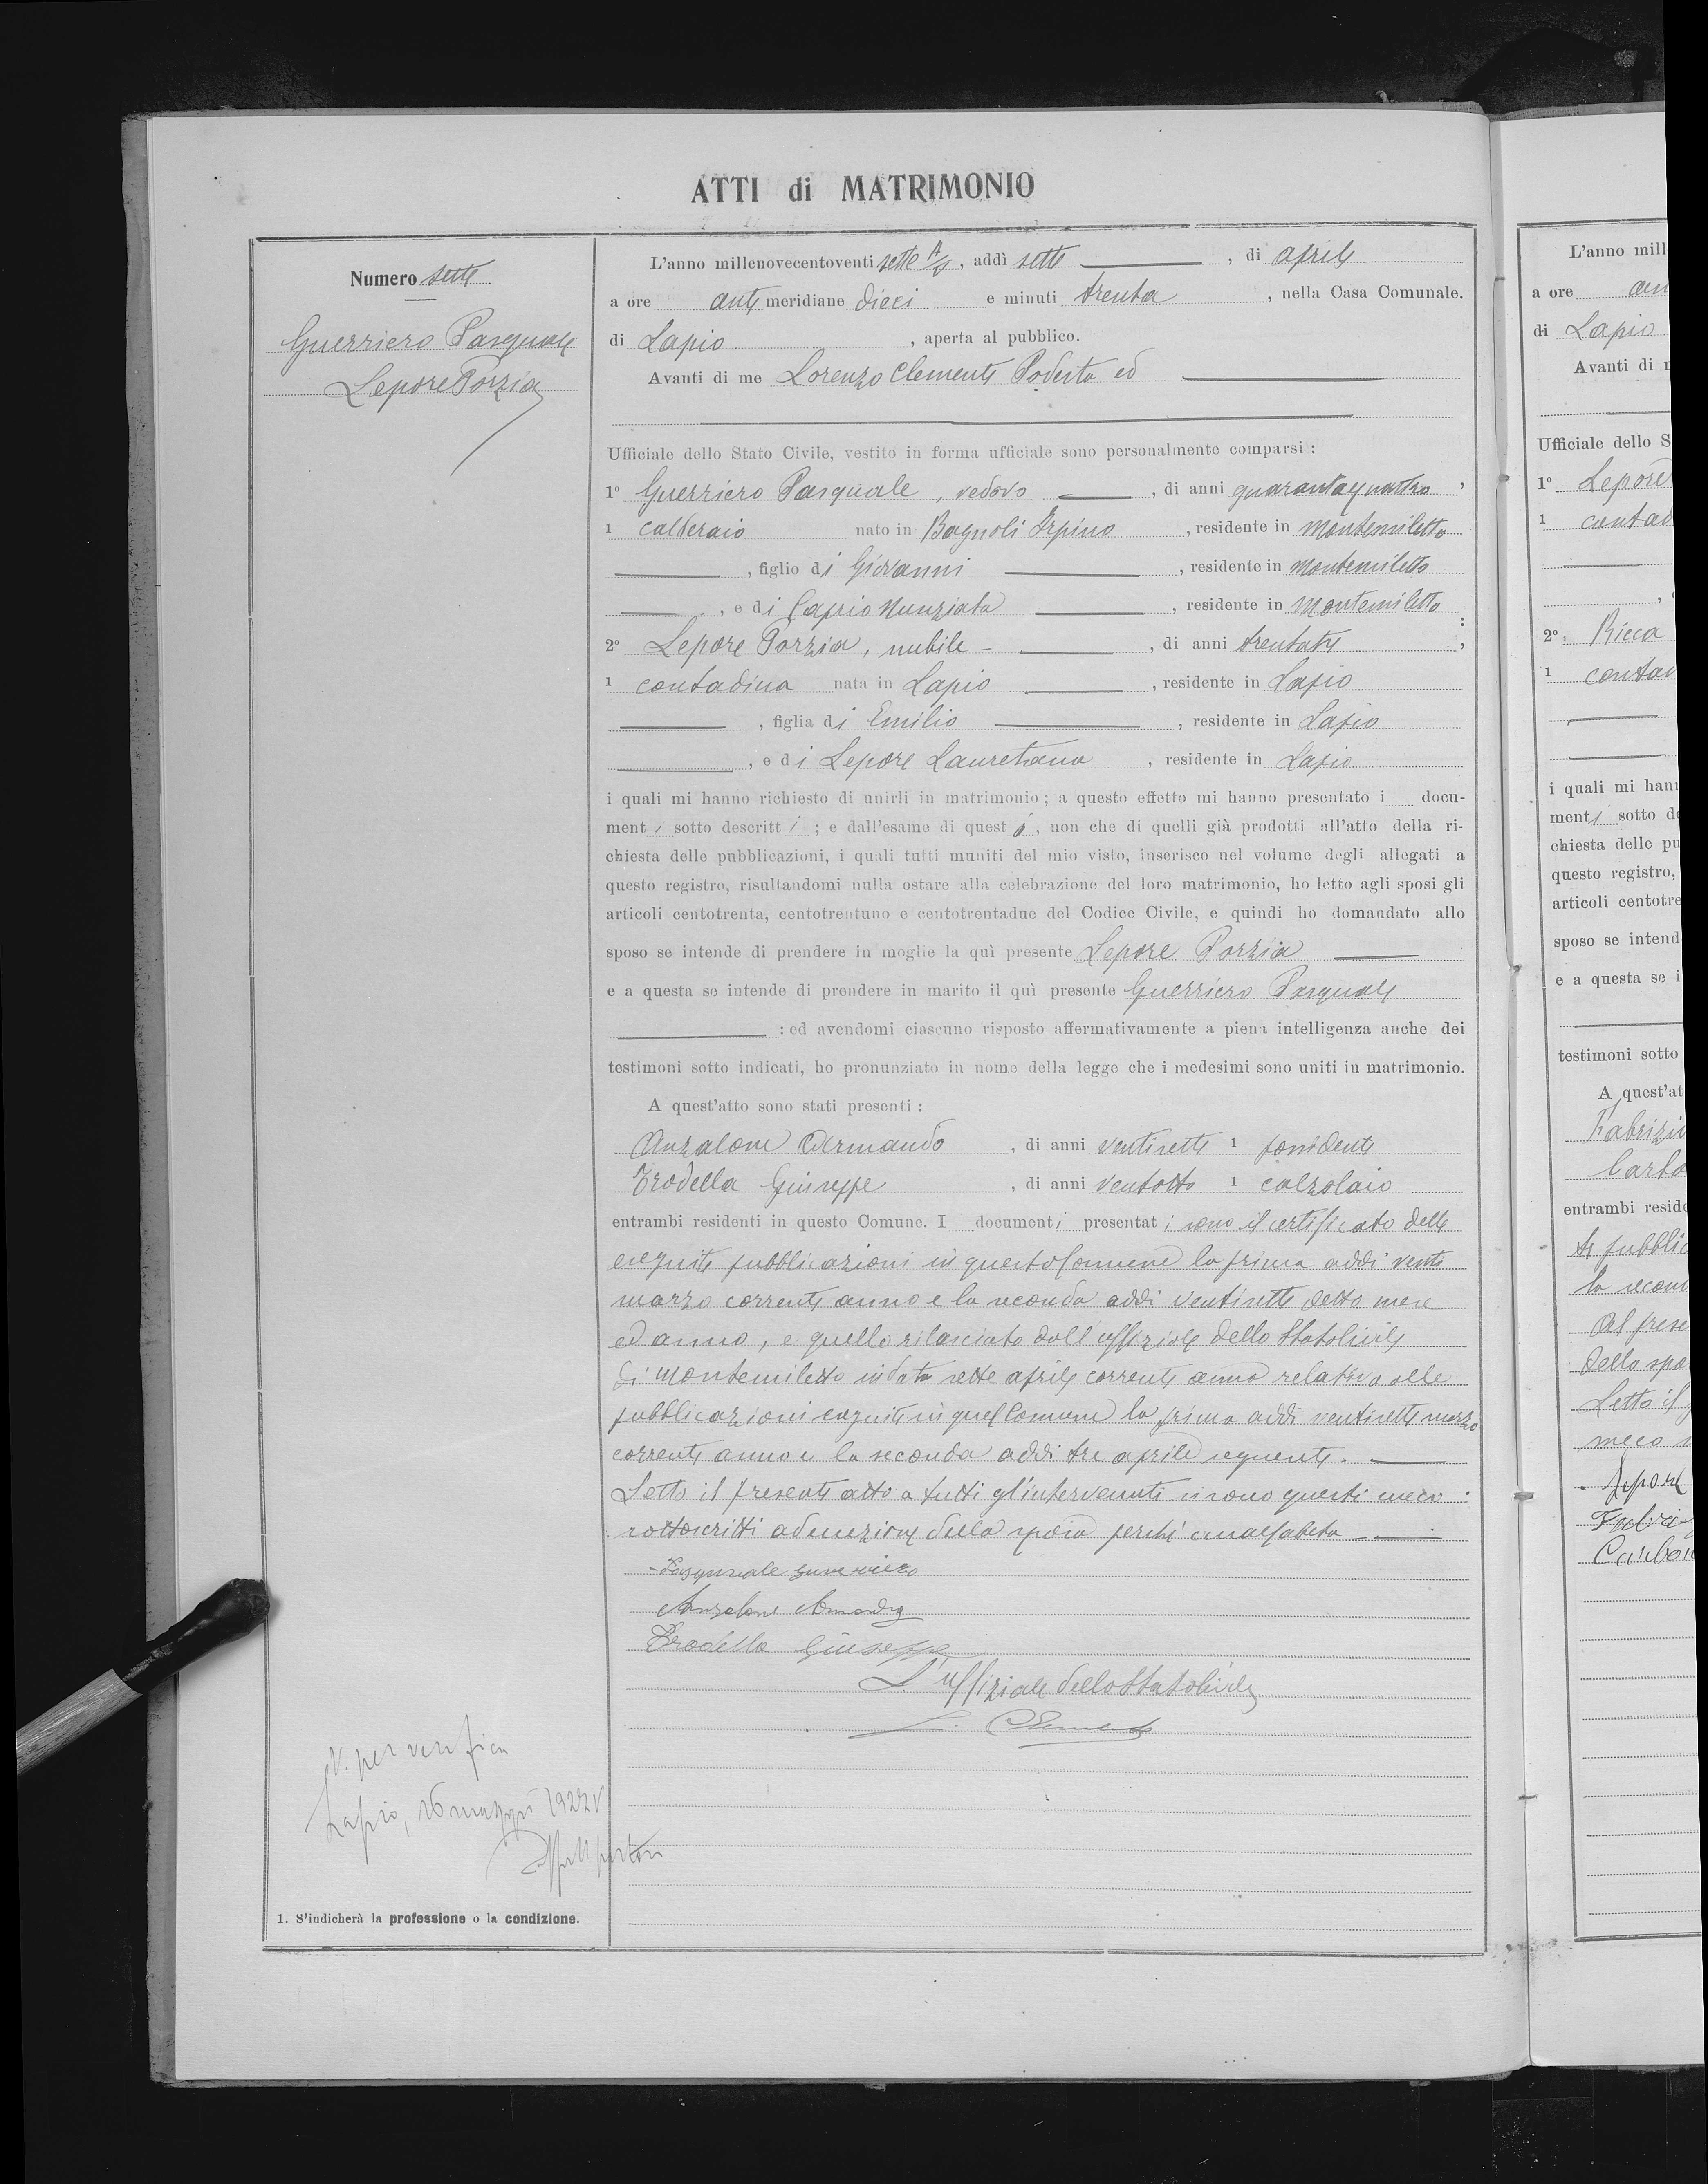 ATTI di MATRIMONIO
Numero sette
Guerriero Pasquale
Lepore Porzia
L'anno millenovecentoventi sette, addì sette, di aprile
a ore anti meridiane dieci e minuti trenta, nella Casa Comunale.
di Lapio, aperta al pubblico.
Avanti di me Lorenzo Clemente Podestà ed
Ufficiale dello Stato Civile, vestito in forma ufficiale sono personalmente comparsi :
1º Guerriero Pasquale, vedovo, di anni quarantaquattro,
1 calderaio nato in Bagnoli Irpino, residente in Montemiletto
, figlio di Giovanni, residente in Montemiletto
, e di Caprio Nunziata, residente in Montemiletto :
2º Lepore Porzia, nubile -, di anni trentatre,
1 contadina nata in Lapio, residente in Lapio
, figlia di Emilio, residente in Lapio
, e di Lepore Lauretana, residente in Lapio
i quali mi hanno richiesto di unirli in matrimonio; a questo effetto mi hanno presentato i docu-
menti sotto descritti ; e dall'esame di questi, non che di quelli già prodotti all'atto della ri-
chiesta delle pubblicazioni, i quali tutti muniti del mio visto, inserisco nel volume degli allegati a
questo registro, risultandomi nulla ostare alla celebrazione del loro matrimonio, ho letto agli sposi gli
articoli centotrenta, centotrentuno e centotrentadue del Codice Civile, e quindi ho domandato allo
sposo se intende di prendere in moglie la quì presente Lepore Porzia
e a questa se intende di prendere in marito il quì presente Guerriero Pasquale
: ed avendomi ciascuno risposto affermativamente a piena intelligenza anche dei
testimoni sotto indicati, ho pronunziato in nome della legge che i medesimi sono uniti in matrimonio.
A quest'atto sono stati presenti :
Anzalone Armando, di anni ventisette 1 possidente
Trodella Giuseppe, di anni ventotto 1 calzolaio
entrambi residenti in questo Comune. I documenti presentati sono il certificato delle
eseguite pubblicazioni in questo Comune la prima addì venti
marzo corrente anno e la seconda addì ventisette detto mese
ed anno, e quello rilasciato dall'uffiziale dello Stato Civile
di Montemiletto in data sette aprile corrente anno relativo alle
pubblicazioni eseguite in quel Comune la prima addì ventisette marzo
corrente anno e la seconda addì tre aprile seguente.
Letto il presente atto a tutti gl'intervenuti si sono questi meco
sottoscritti ad eccezione della sposa perché analfabeta
Pasquale Guerriero
Anzalone Armando
Trodella Giuseppe
L'uffiziale dello Stato Civile
L. Clemente
V. per verifica
Lapio, 16 maggio 1927
1. S'indicherà la professione o la condizione.
L'anno mill
a ore an
di Lapio
Avanti di
Ufficiale dello S
1º Lepore
1 contad
2º Ricca
1 contad
i quali mi hann
menti sotto de
chiesta delle pu
questo registro,
articoli centotre
sposo se intend
e a questa se i
testimoni sotto
A quest'at
Fabrizi
Carbo
entrambi reside
te pubblic
la secon
Al prese
dello spo
Letto il
meco
Lepore
Fabriz
Carbon